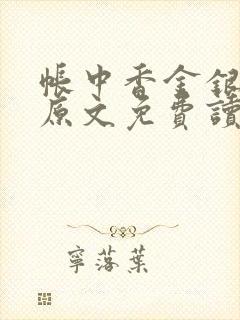 帳中香金銀
原文免費讀
寧落葉